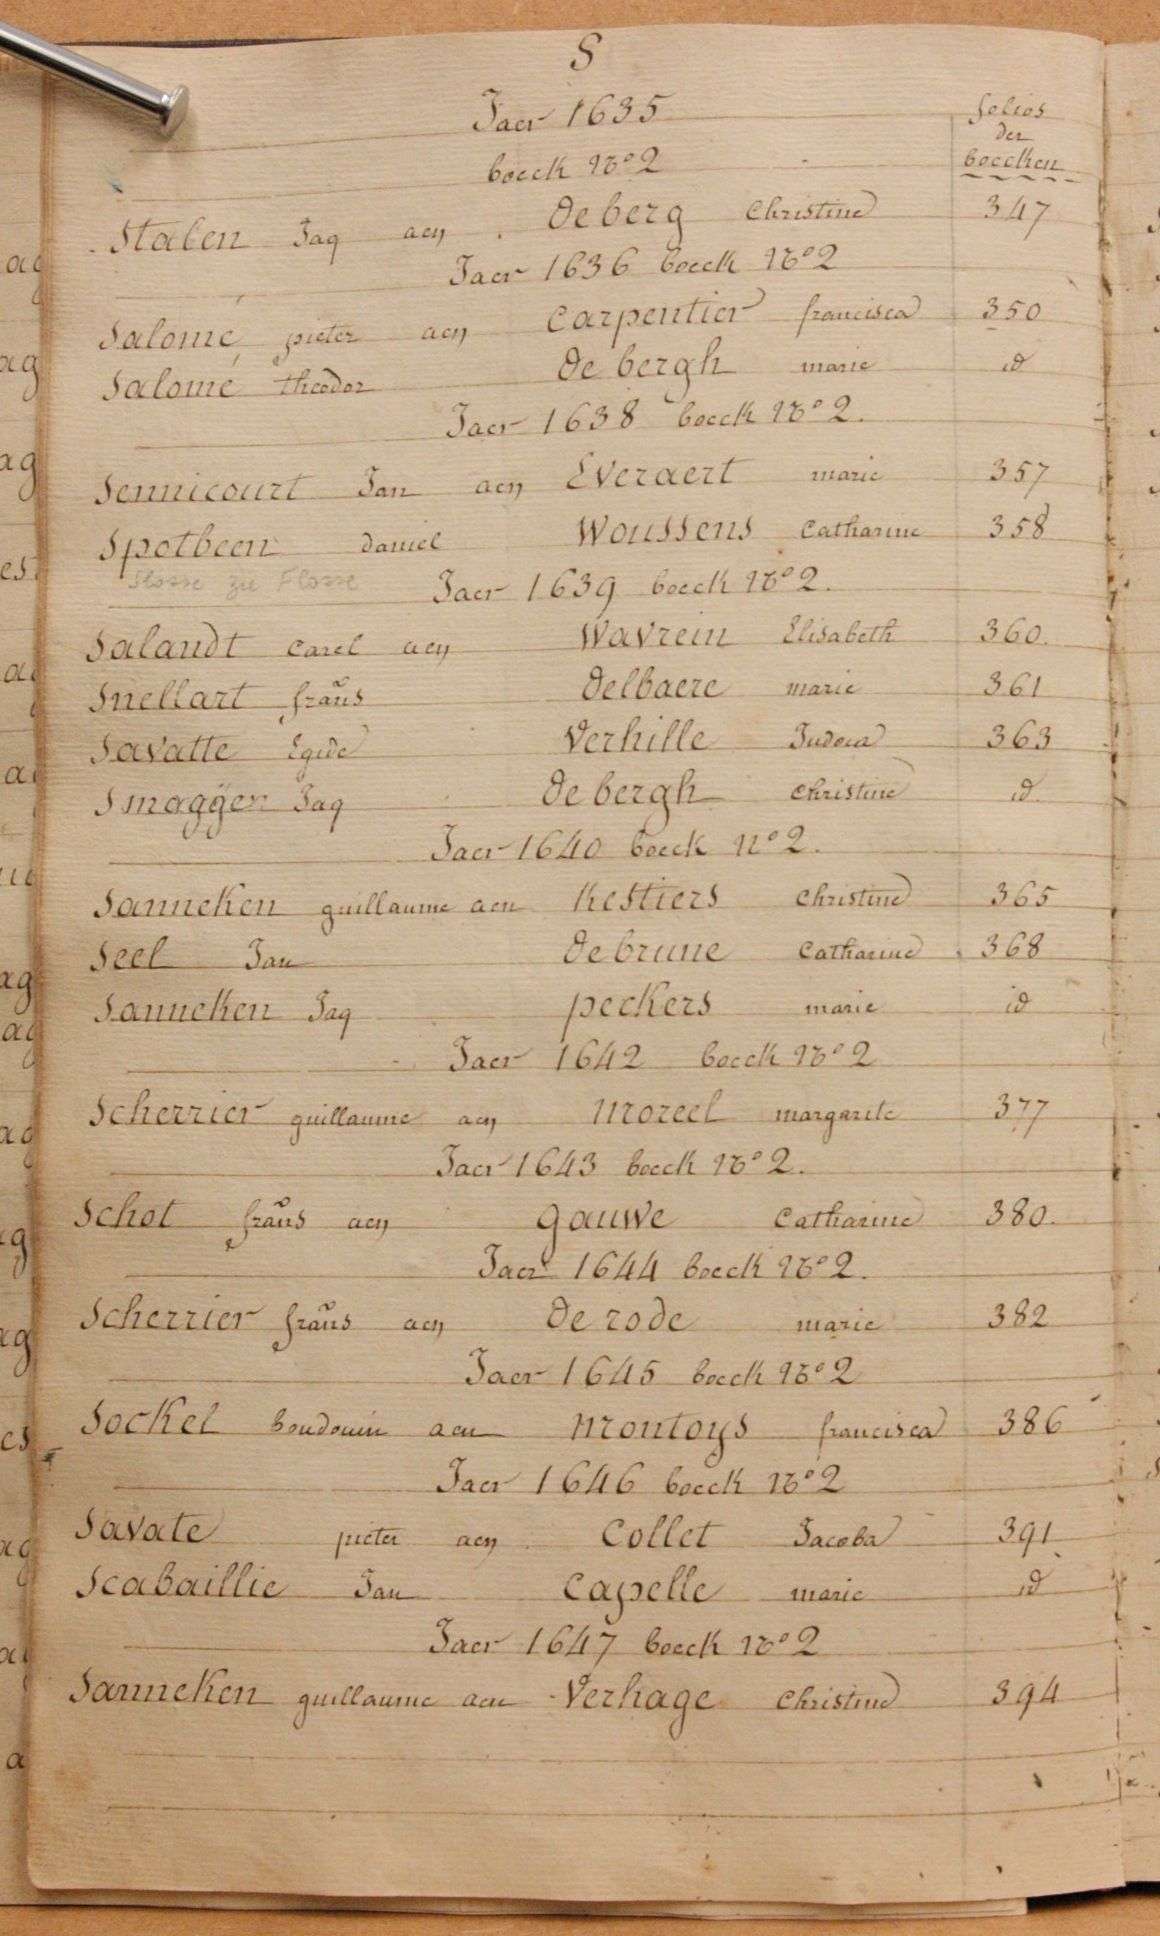 S
Jaer 1635
folios
der
boecken
boeck No 2
Stalen Jaq aen de berg Christine 347
Jaer 1636 boeck No 2
Salomé pieter aen Carpentier francisca 350
Salomé theodor de bergh marie id
Jaer 1638 boeck No 2.
Sennicourt Jan aen Everaert marie 357
Spotbeen daniel Woussens Catharine 358
Jaer 1639 boeck No 2.
Salandt Carel aen Wavrein Elisabeth 360.
Snellart frans delbaere marie 361
Savatte Egide Verhille Judoca 363
Smagÿer Jaq de bergh Christine id.
Jaer 1640 boeck No 2.
Sanneken guillaume aen Kestiers Christine 365
Seel Jan de brune Catharine 368
Sanneken Jaq peckers marie id
Jaer 1642 boeck No 2
Scherrier guillaume aen Moreel margarite 377
Jaer 1643 boeck No 2.
Schot frans aen gauwe Catharine 380.
Jaer 1644 boeck No 2.
Scherrier frans aen de rode marie 382
Jaer 1645 boeck No 2
Sockel boudouin aen Montoys francisca 386
Jaer 1646 boeck No 2
Savate pieter aen Collet Jacoba 391
Scabaillie Jan Capelle marie id
Jaer 1647 boeck No 2
Sanneken guillaume aen Verhage Christine 394